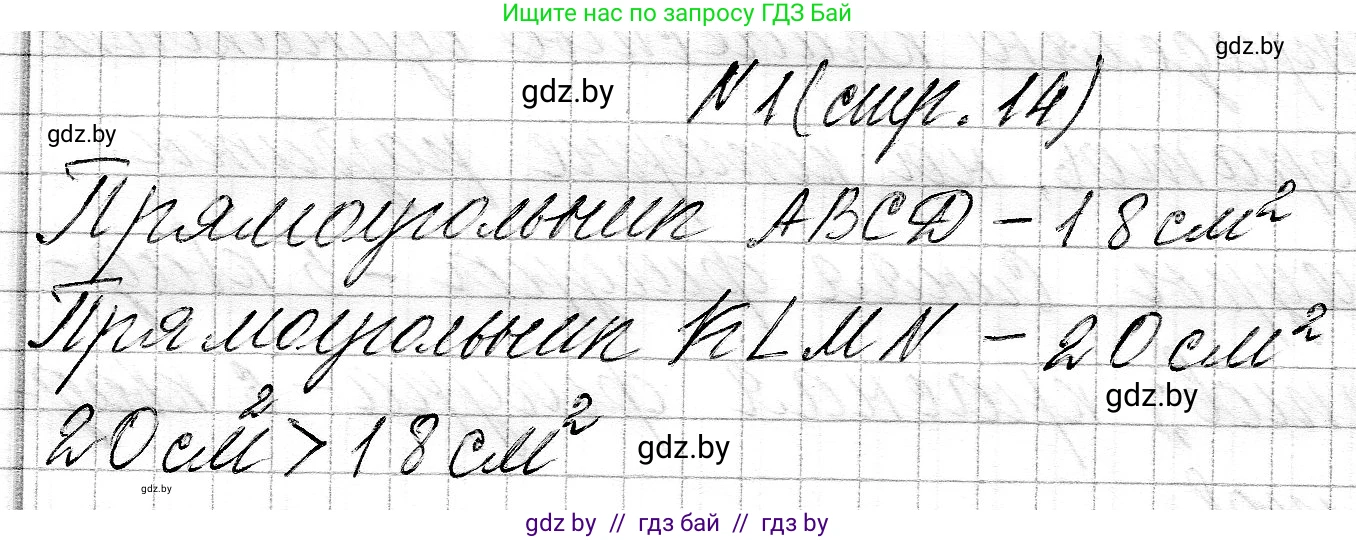 Ищите нас по запросу ГДЗ Бай
gdz.by
N 1 (стр. 14)
gdz.by
gdz.by
Прямоугольник ABCD - 18 см²
Прямоугольник KLMN - 20 см²
gdz.by
20 см² > 18 см²
gdz.by
gdz.by
gdz by // гдз бай // гдз by